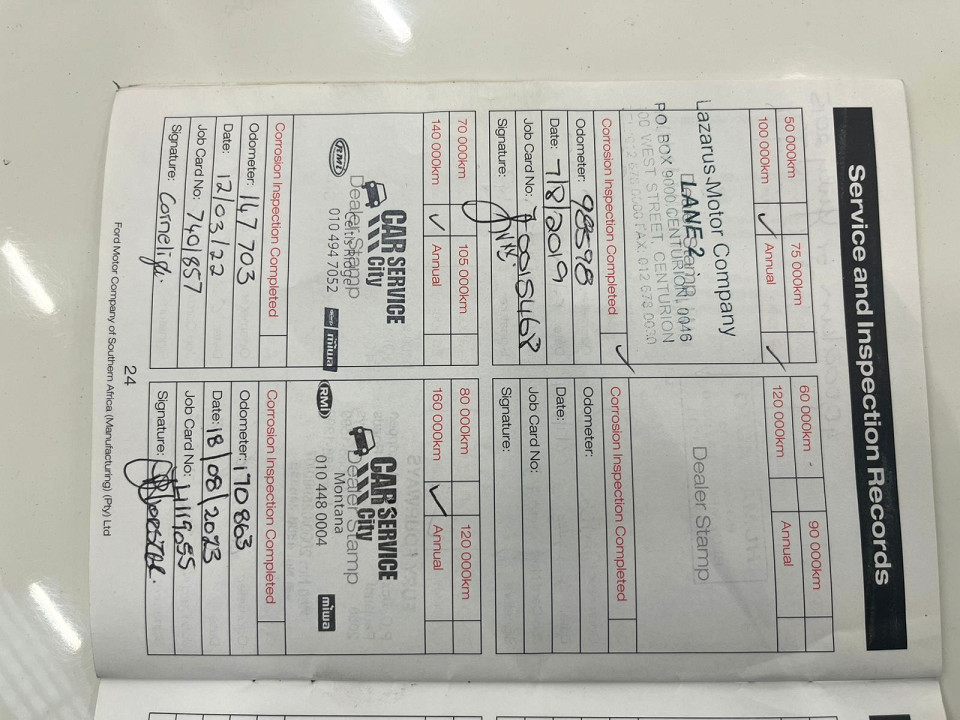 Service and Inspection Records
50 000km
75 000km
100 000km ✓
Annual ✓
Lazarus Motor Company
LANE 2
P.O. BOX 9000 CENTURION, 0046
WEST STREET, CENTURION
FAX. 012 678 0030
Corrosion Inspection Completed ✓
Odometer: 98598
Date: 7/8/2019
Job Card No:
Signature:
60 000km
90 000km
120 000km
Annual
Dealer Stamp
Corrosion Inspection Completed
Odometer:
Date:
Job Card No:
Signature:
70 000km
105 000km
140 000km ✓
Annual
CAR SERVICE
City
Dealer Stamp
Celtis Ridge
010 494 7052
RMI
miwa
Corrosion Inspection Completed
Odometer: 147 703
Date: 12/03/22
Job Card No: 740/857
Signature:
80 000km
120 000km
160 000km ✓
Annual
CAR SERVICE
City
Dealer Stamp
Montana
010 448 0004
RMI
miwa
Corrosion Inspection Completed
Odometer: 170 863
Date: 18/08/2023
Job Card No:
Signature:
24
Ford Motor Company of Southern Africa (Manufacturing) (Pty) Ltd